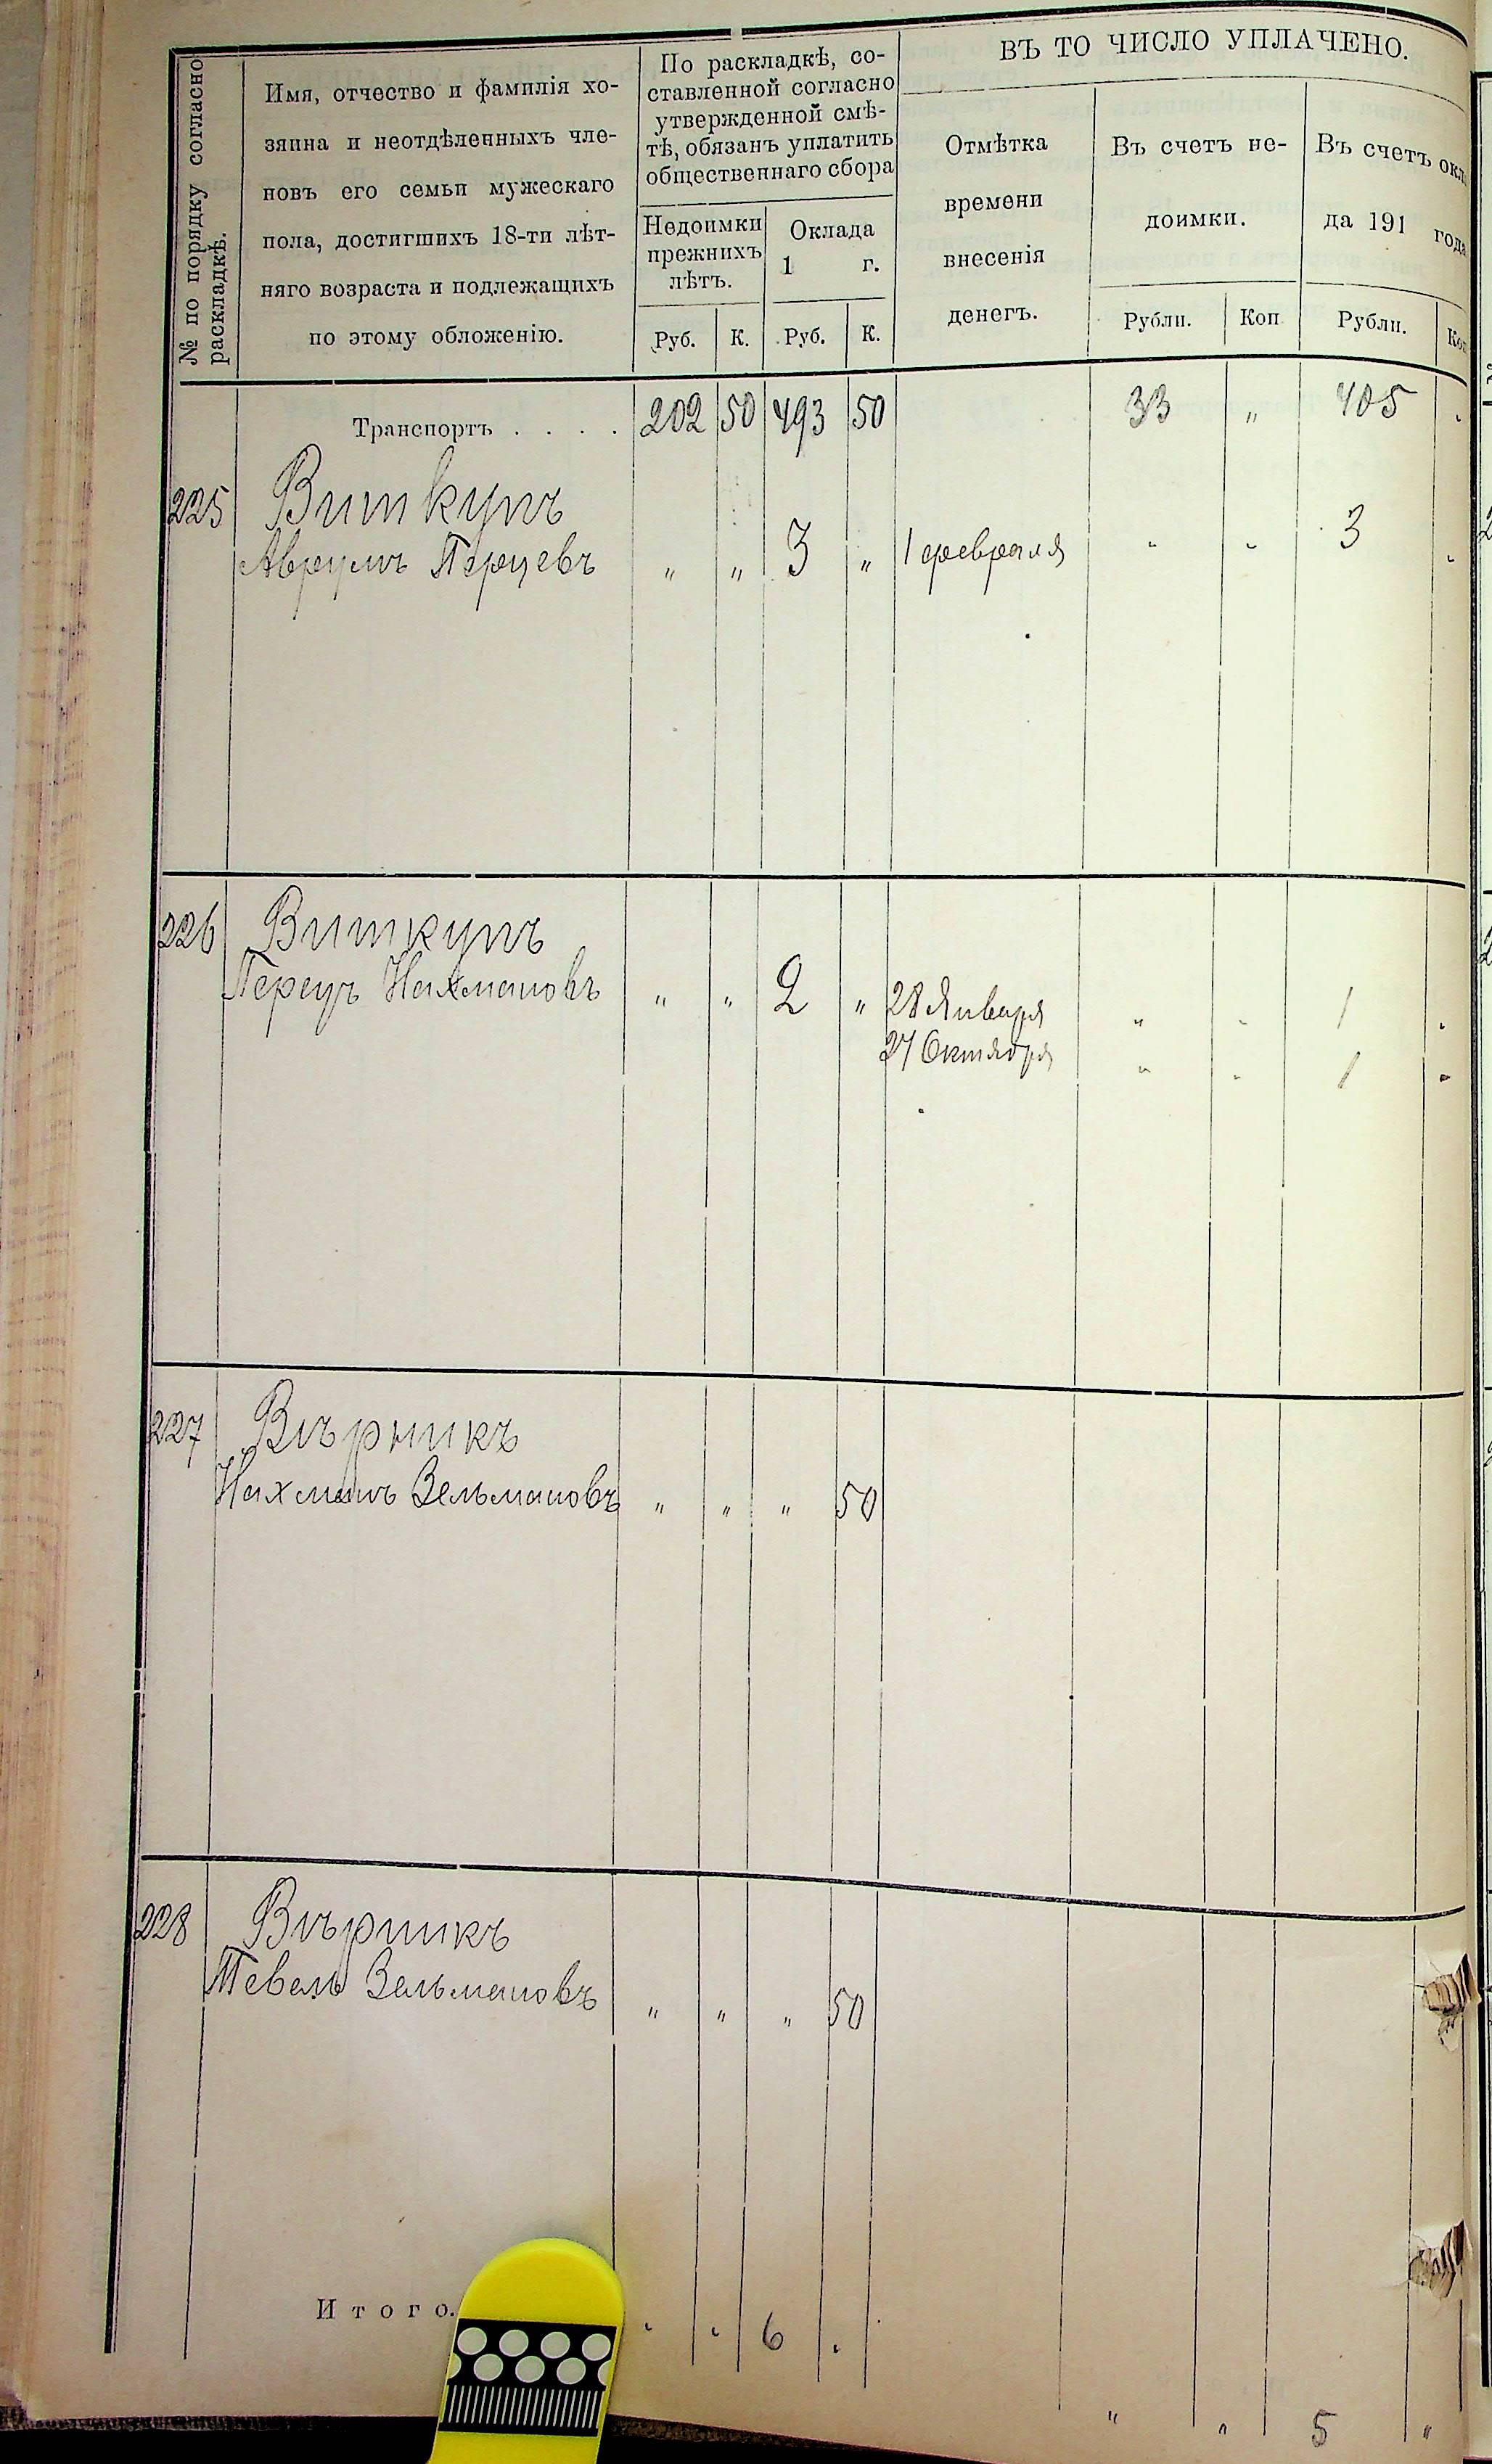 № по порядку согласно
раскладкѣ.
Имя, отчество и фамилія хо-
зяина и неотдѣленныхъ чле-
новъ его семьи мужескаго
пола, достигшихъ 18-ти лѣт-
няго возраста и подлежащихъ
по этому обложенію.
По раскладкѣ, со-
ставленной согласно
утвержденной смѣ-
тѣ, обязанъ уплатить
общественнаго сбора
Недоимки
прежнихъ
лѣтъ.
Оклада
1 г.
Руб. К. Руб. К.
ВЪ ТО ЧИСЛО УПЛАЧЕНО.
Отмѣтка
времени
внесенія
денегъ.
Въ счетъ не-
доимки.
Рубли. Коп
Въ счетъ окла
да 191 года
Рубли. Коп
Транспортъ . . . . 202 50 493 50 33 „ 405
225 Виткупъ
Аврумъ Перцевъ „ „ 3 „ 1 февраля „ „ 3 „
226 Виткупъ
Перецъ Нахмановъ „ „ 2 „ 28 Января „ „ 1 „
27 Октября „ „ 1 „
227 Вѣрникъ
Нахманъ Зельмановъ „ „ „ 50
228 Вѣрникъ
Тевель Зельмановъ „ „ „ 50
Итого. „ „ 6 „
„ „ 5 „